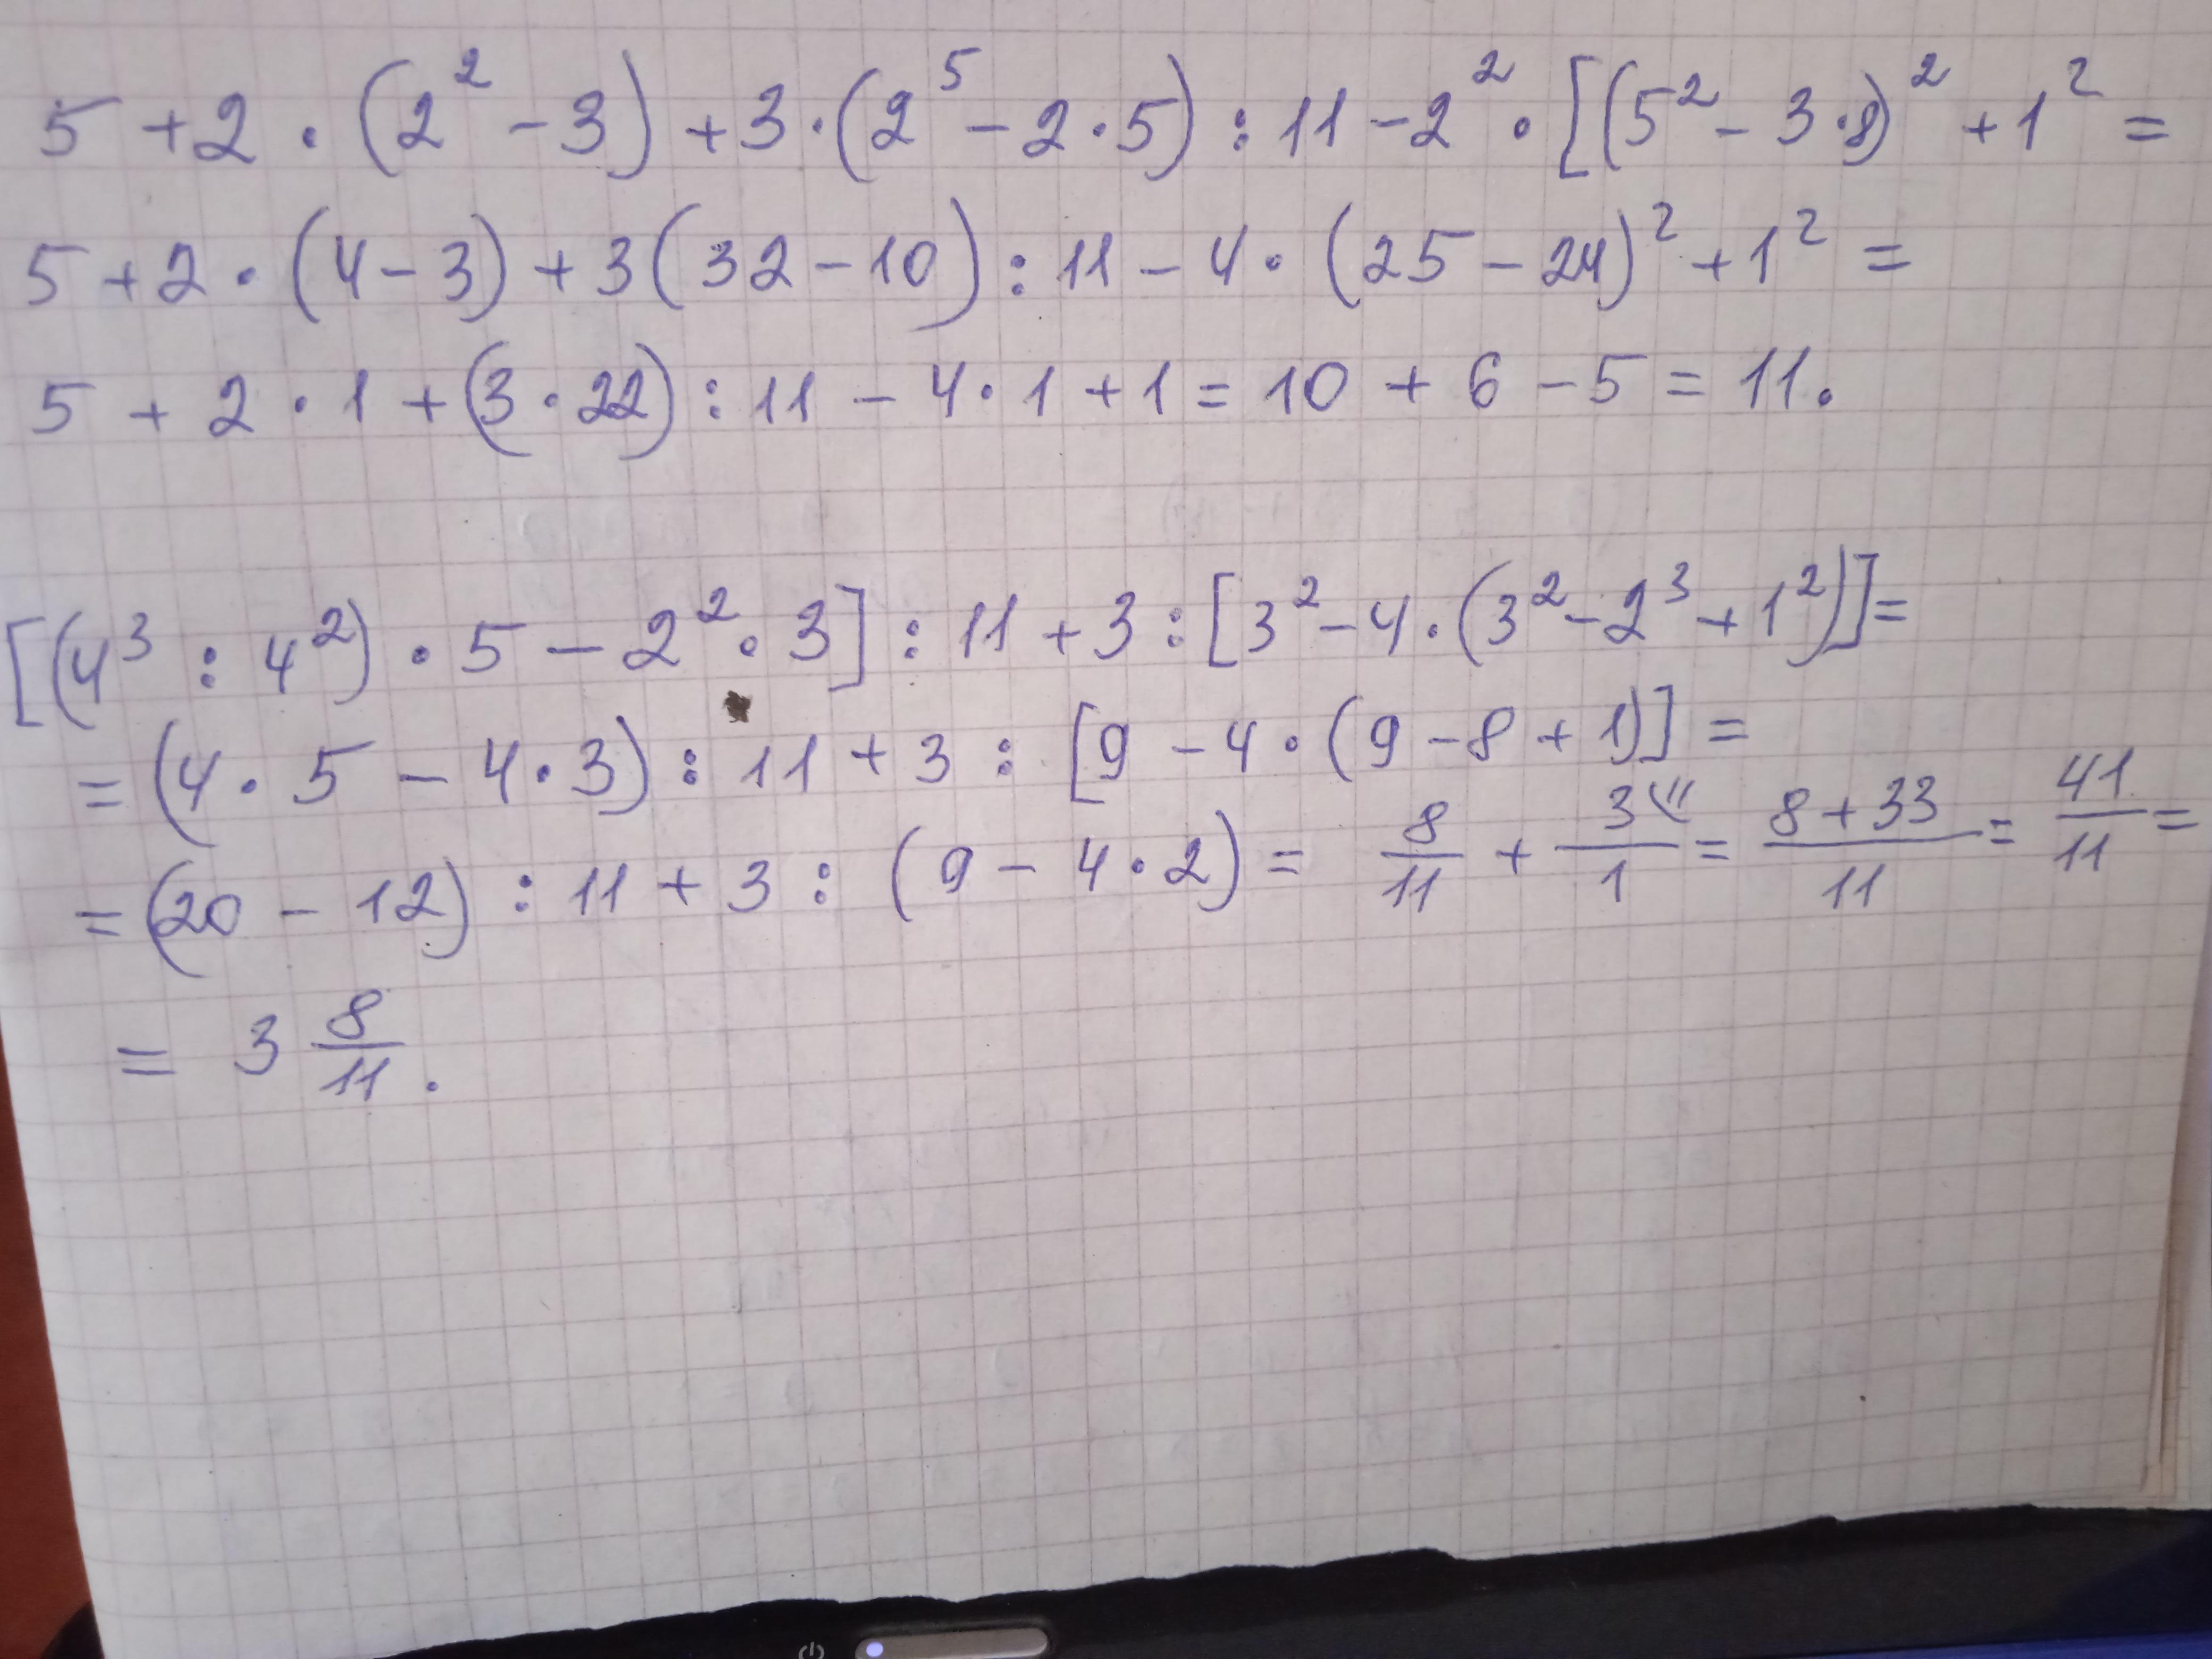 5 + 2 · (2² - 3) + 3 · (2⁵ - 2 · 5) : 11 - 2² · [(5² - 3 · 8)² + 1² =
5 + 2 · (4 - 3) + 3 (32 - 10) : 11 - 4 · (25 - 24)² + 1² =
5 + 2 · 1 + (3 · 22) : 11 - 4 · 1 + 1 = 10 + 6 - 5 = 11.
[(4³ : 4²) · 5 - 2² · 3] : 11 + 3 : [3² - 4 · (3² - 2³ + 1²)] =
= (4 · 5 - 4 · 3) : 11 + 3 : [9 - 4 · (9 - 8 + 1)] =
= (20 - 12) : 11 + 3 : (9 - 4 · 2) = 8/11 + 3⁽¹¹/1 = (8 + 33)/11 = 41/11 =
= 3 8/11.